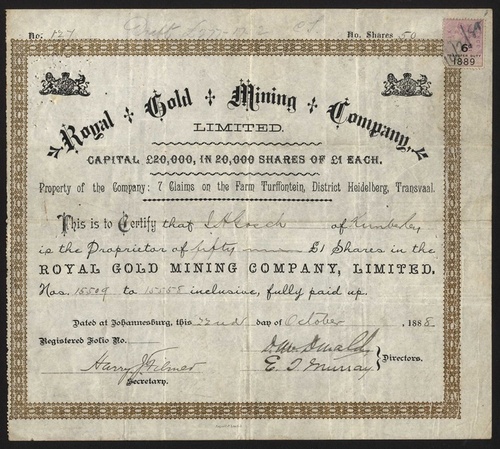 No. 127 No. Shares 50
6D
1889
Royal Gold Mining Company,
LIMITED.
CAPITAL £20,000, IN 20,000 SHARES OF £1 EACH.
Property of the Company: 7 Claims on the Farm Turffontein, District Heidelberg, Transvaal.
This is to Certify that of Kimberley
is the Proprietor of fifty £1 Shares in the
ROYAL GOLD MINING COMPANY, LIMITED.
Nos. 15509 to 15558 inclusive, fully paid up.
Dated at Johannesburg, this 22nd day of October 1888
Registered Folio No.
Harry J. Filmer
Secretary.
E. Murray
Directors.